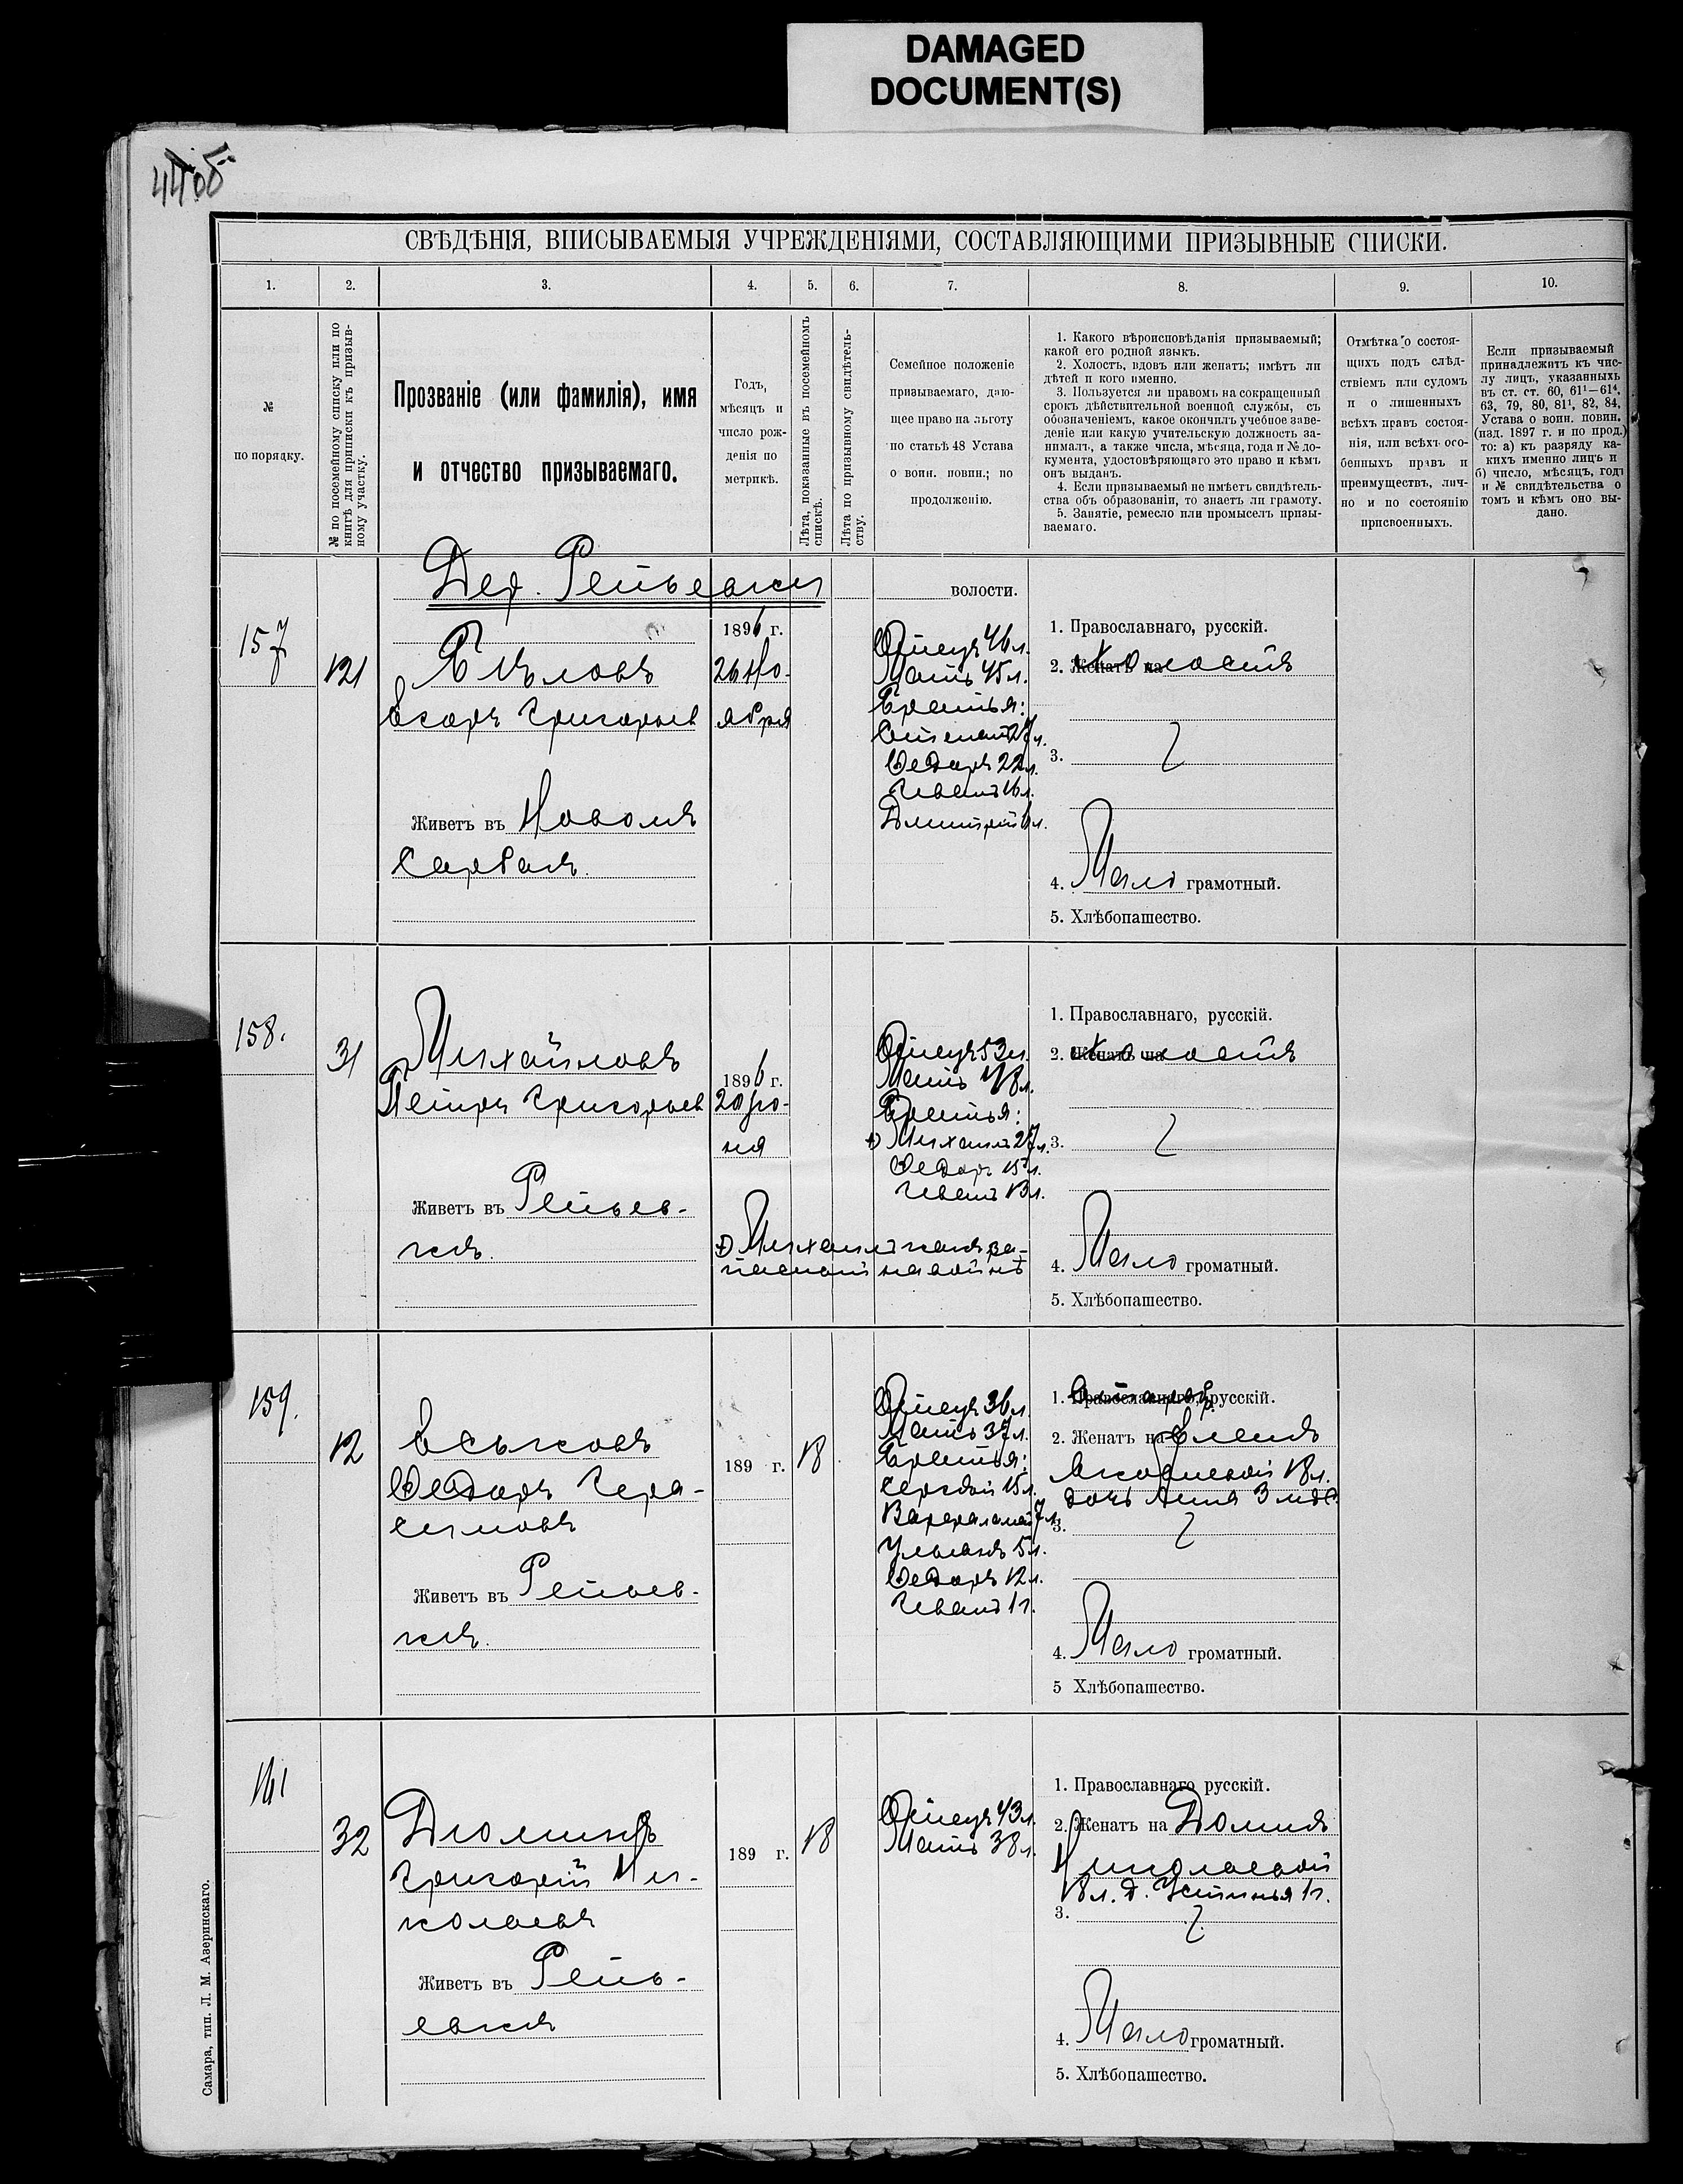 DAMAGED
DOCUMENT(S)
СВѢДѢНІЯ, ВПИСЫВАЕМЫЯ УЧРЕЖДЕНІЯМИ, СОСТАВЛЯЮЩИМИ ПРИЗЫВНЫЕ СПИСКИ.
1.
2.
3.
4.
5.
6.
7.
8.
9.
10.
№
по порядку.
№ по посемейному списку или по
книгѣ для приписки къ призыв-
ному участку.
Прозваніе (или фамилія), имя
и отчество призываемаго.
Годъ,
мѣсяцъ и
число рож-
денія по
метрикѣ.
Лѣта, показанные въ посемейномъ
спискѣ.
Лѣта по призывному свидѣтель-
ству.
Семейное положеніе
призываемаго, даю-
щее право на льготу
по статьѣ 48 Устава
о воин. повин.; по
продолженію.
1. Какого вѣроисповѣданія призываемый;
какой его родной языкъ.
2. Холостъ, вдовъ или женатъ; имѣтъ ли
дѣтей и кого именно.
3. Пользуется ли правомъ на сокращенный
срокъ дѣйствительной военной службы, съ
обозначеніемъ, какое окончилъ учебное заве-
деніе или какую учительскую должность за-
нималъ, а также числа, мѣсяца, года и № до-
кумента, удостовѣряющаго это право и кѣмъ
онъ выданъ.
4. Если призываемый не имѣетъ свидѣтель-
ства объ образованіи, то знаетъ ли грамоту.
5. Занятіе, ремесло или промыселъ призы-
ваемаго.
Отмѣтка о состоя-
щихъ подъ слѣд-
ствіемъ или судомъ
и о лишенныхъ
всѣхъ правъ состоя-
нія, или всѣхъ осо-
бенныхъ правъ и
преимуществъ, лич-
но и по состоянію
присвоенныхъ.
Если призываемый
принадлежитъ къ чис-
лу лицъ, указанныхъ
въ ст. ст. 60, 61¹—61⁴,
63, 79, 80, 81¹, 82, 84,
Устава о воин. повин.
(изд. 1897 г. и по прод.)
то: а) къ разряду ка-
кихъ именно лицъ и
б) число, мѣсяцъ, годъ
и № свидѣтельства о
томъ и кѣмъ оно вы-
дано.
Дер.
волости.
157
121
Егоръ Григорьев
Живетъ въ Новомъ
1896 г.
26 Но-
ября
Отецъ 46 л.
Мать 45 л.
Братья:
Степанъ 27 л.
Федоръ 22 л.
Иванъ 16 л.
Дмитрій
1. Православнаго, русскій.
2. Женатъ на холостъ
3.
4. Мало грамотный.
5. Хлѣбопашество.
158.
31
Михайловъ
Петръ Григорьев
Живетъ въ
1896 г.
20 Ію-
ня
Отецъ 53 л.
Мать 48 л.
Братья:
Михаилъ 27 л.
Федоръ 15 л.
Иванъ 13 л.
1. Православнаго, русскій.
2. Женатъ на холостъ
3.
4. Мало громатный.
5. Хлѣбопашество.
159.
12
Еськовъ
Федоръ Гера-
симовъ
Живетъ въ
189 г.
18
Отецъ 36 л.
Мать 37 л.
Братья:
Сергѣй 15 л.
Варфоломей 7 л.
Ульянъ 5 л.
Федоръ 12 л.
Иванъ 1 г.
1. Православнаго, русскій.
2. Женатъ на Еленѣ
18 л.
дочь Анна 3 мѣс
3.
4. Мало громатный.
5 Хлѣбопашество.
161
32
Григорій Ни-
колаевъ
Живетъ въ
189 г.
18
Отецъ 43 л.
Мать 38 л.
1. Православнаго русскій.
2. Женатъ на Домнѣ
Николаевой
18 л. д. Устинья 1 г.
3.
4. Мало громатный.
5. Хлѣбопашество.
Самара, тип. Л. М. Азеринскаго.